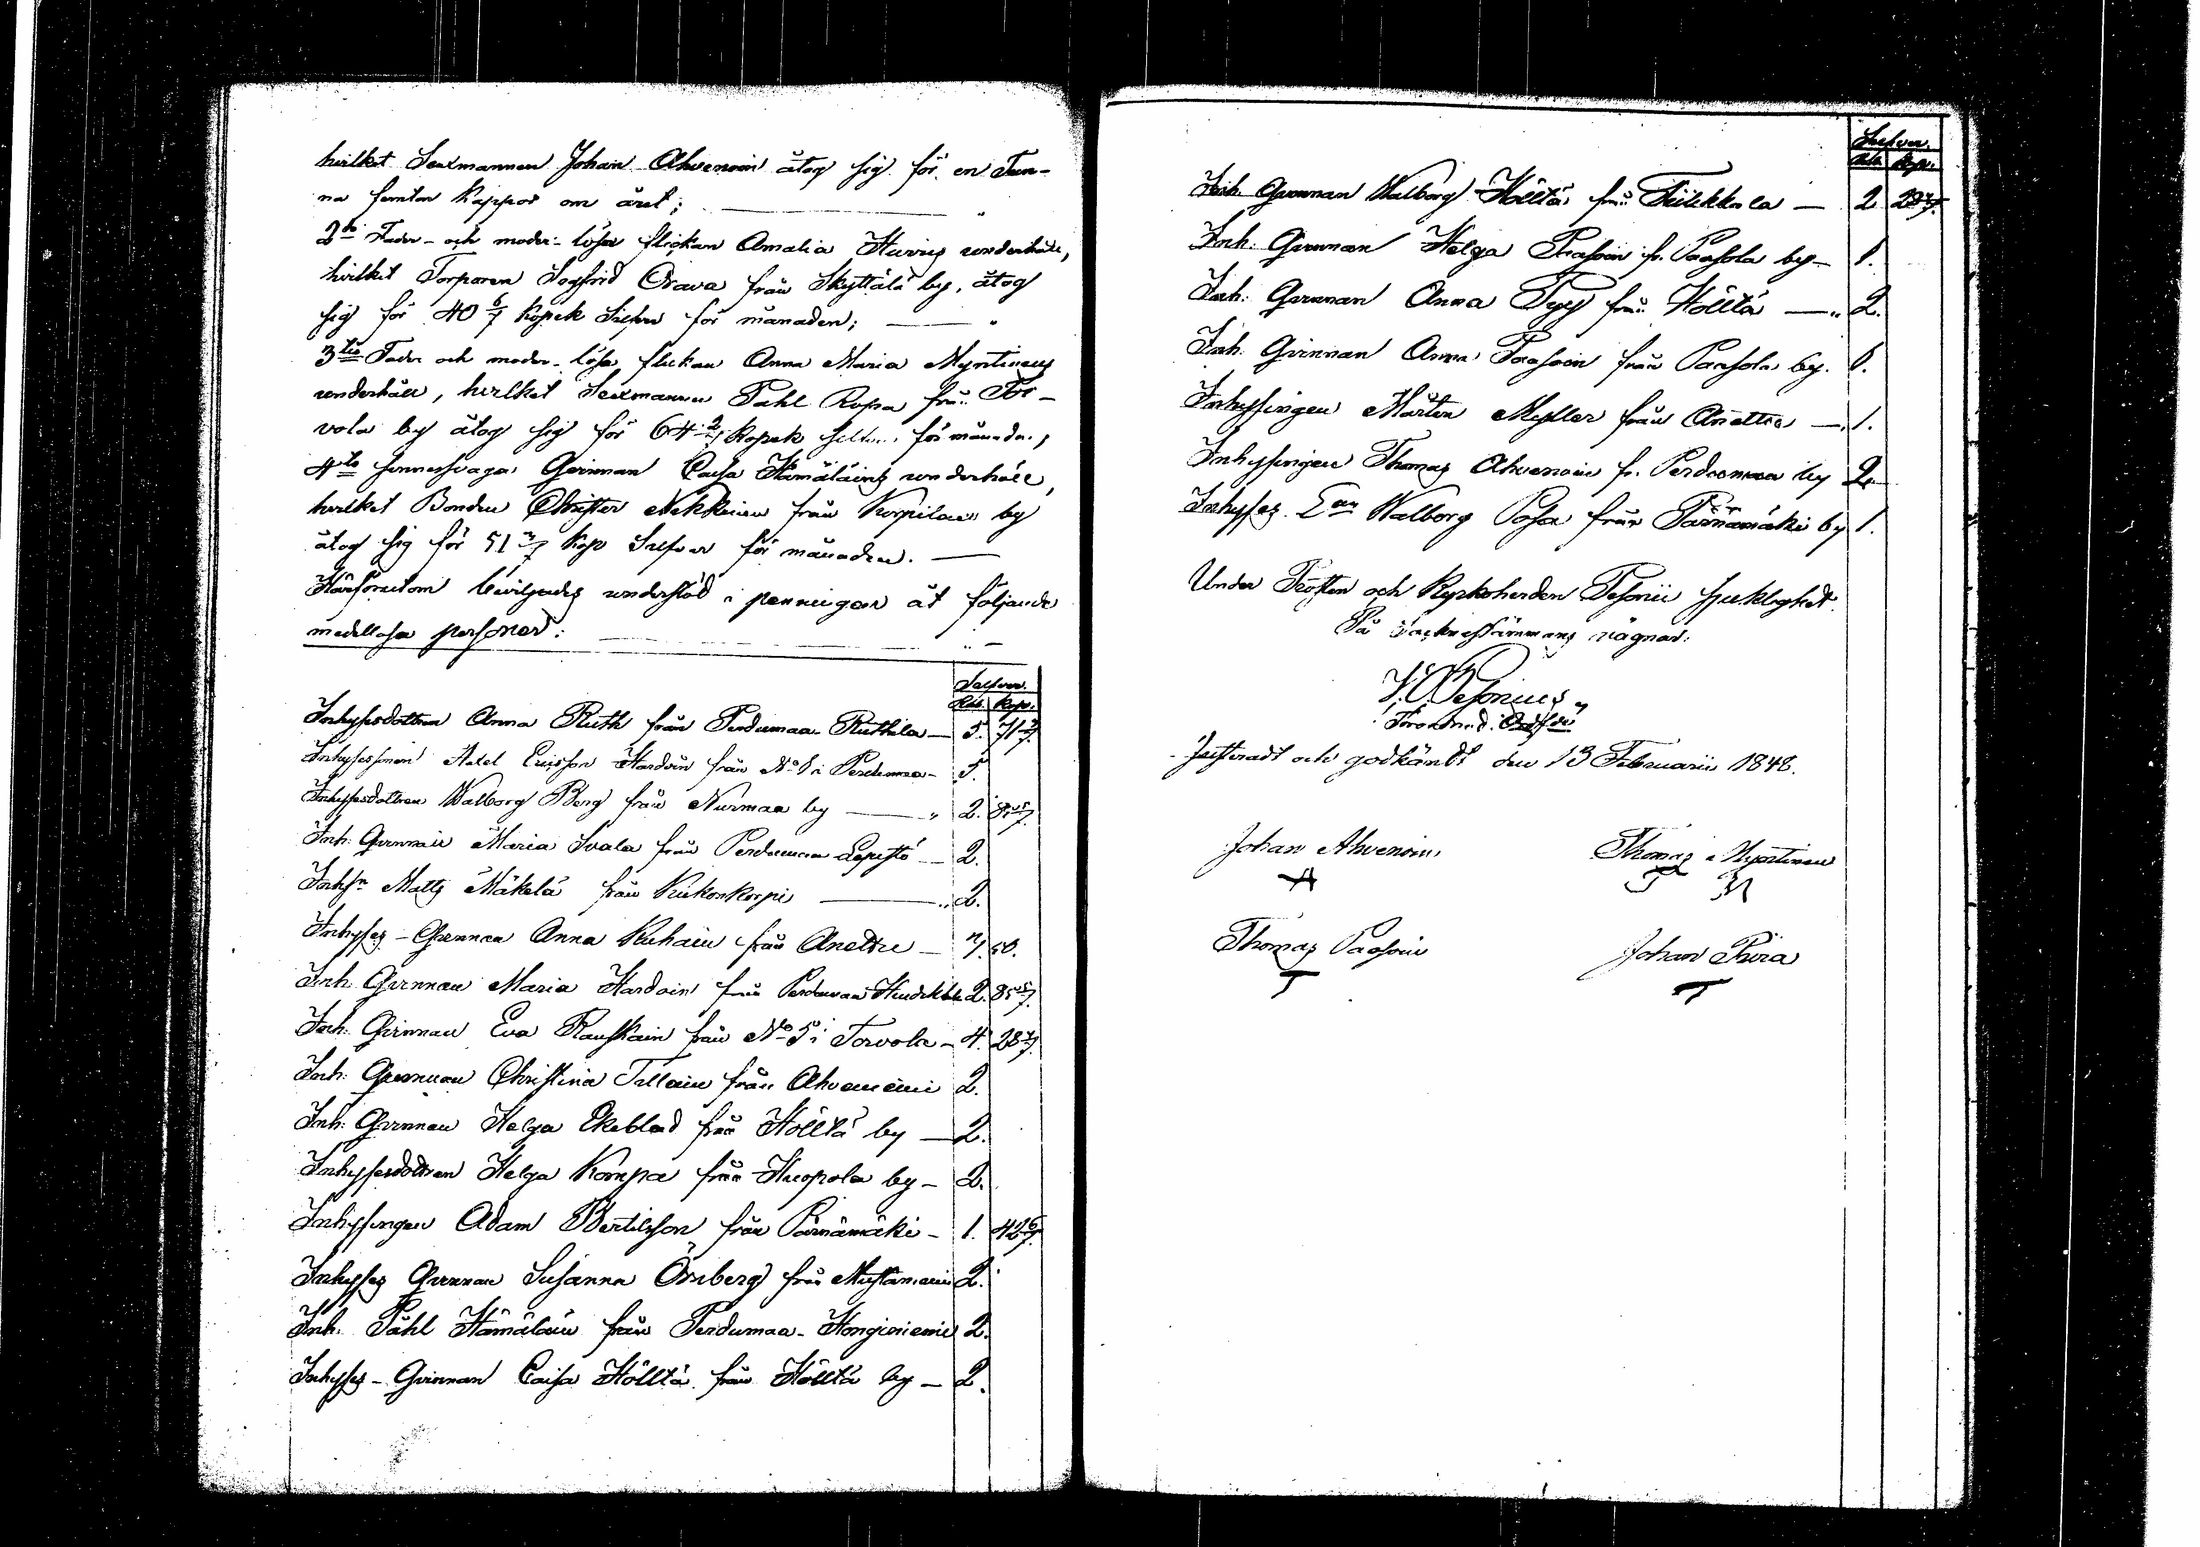 hvilket Sexmannen Johan Ahvenoin åtog sig för en Tun-
na femton kappor om året;
2do Fader- och moder-lösa flickan Amalia underhåll,
hvilket Torparen Sogfrid Orava från Skyttälä by, åtog
sig för 40 6/7 kopek Silfver för månaden;
3tio Fader och moder-lösa flickan Anna Maria Myntinens
underhåll, hvilket Sexmannen Påhl Ropa från Tor-
vola by åtog sig för 64 2/7 kopek Silfver för månaden,
4to sinnessvaga Qvinnan Caisa Hämäläins underhåll,
hvilket Bonden Christer Nikkinen från Korpilax by
åtog sig för 51 3/7 kop Silfver för månaden.
Härförutom beviljades understöd i penningar åt följande
medellösa personer:
Silfver.
Rub. Kop.
Inhysesdottren Anna Ruth från Perdumaa-Ruthila — 5. 71 3/7.
Inhysessonen Axel Ericsson Hardoin från No 8 i Perdumaa — 5.
Inhysesdottren Walborg Berg från Nurmaa by — 2. 85 5/7.
Inh: Qvinnan Maria Suala från Perdumaa Lepistö — 2.
Inhysn Matts Mäkelä från Kukonkorpi — 2.
Inhyses-Qvinnan Anna Kuhain från Anettu — 7. 50.
Inh: Qvinnan Maria Hardoin från Perdumaa 2. 85 5/7.
Inh: Qvinnan Eva Rauskain från No 5 i Torvola — 4. 28 4/7.
Inh: Qvinnan Christina Tillain från Ahvenniemi 2.
Inh: Qvinnan Helga Ekeblad från Hölltä by — 2.
Inhysesdottren Helga Kompa från Huopola by — 2.
Inhysingen Adam Bertilsson från Pärnämäki — 1. 42 6/7.
Inhyses Qvinnan Susanna Örnberg från Mustaniemi 2.
Inh: Påhl Hämäläin från Perdumaa-Honginiemi 2.
Inhyses-Qvinnan Caisa Hölltä från Hölltä by — 2.
Silfver.
Rub. Kop.
Inh: Qvinnan Walborg Hölltä från Tiilikkala — 2 28 4/7.
Inh: Qvinnan Helga Paasoin fr. Paasola by — 1.
Inh: Qvinnan Anna Tyy från Hölltä — 2.
Inh: Qvinnan Anna Paasoin från Paasola by. 1.
Inhysingen Mårten Myller från Anettu — 1.
Inhysingen Thomas Ahvenoin fr. Perdoomaa by 2.
Inhyses Walborg Posa från Pärnämäki by 1.
Under Prosten och Kyrkoherden Tesorii sjuklighet.
På Sockenstämmans vägnar:
Tesorius,
Justeradt och godkändt den 13 Februarii 1848.
Johan Ahvenoin, Thomas Myntinen
Thomas Paasoin Johan Piira